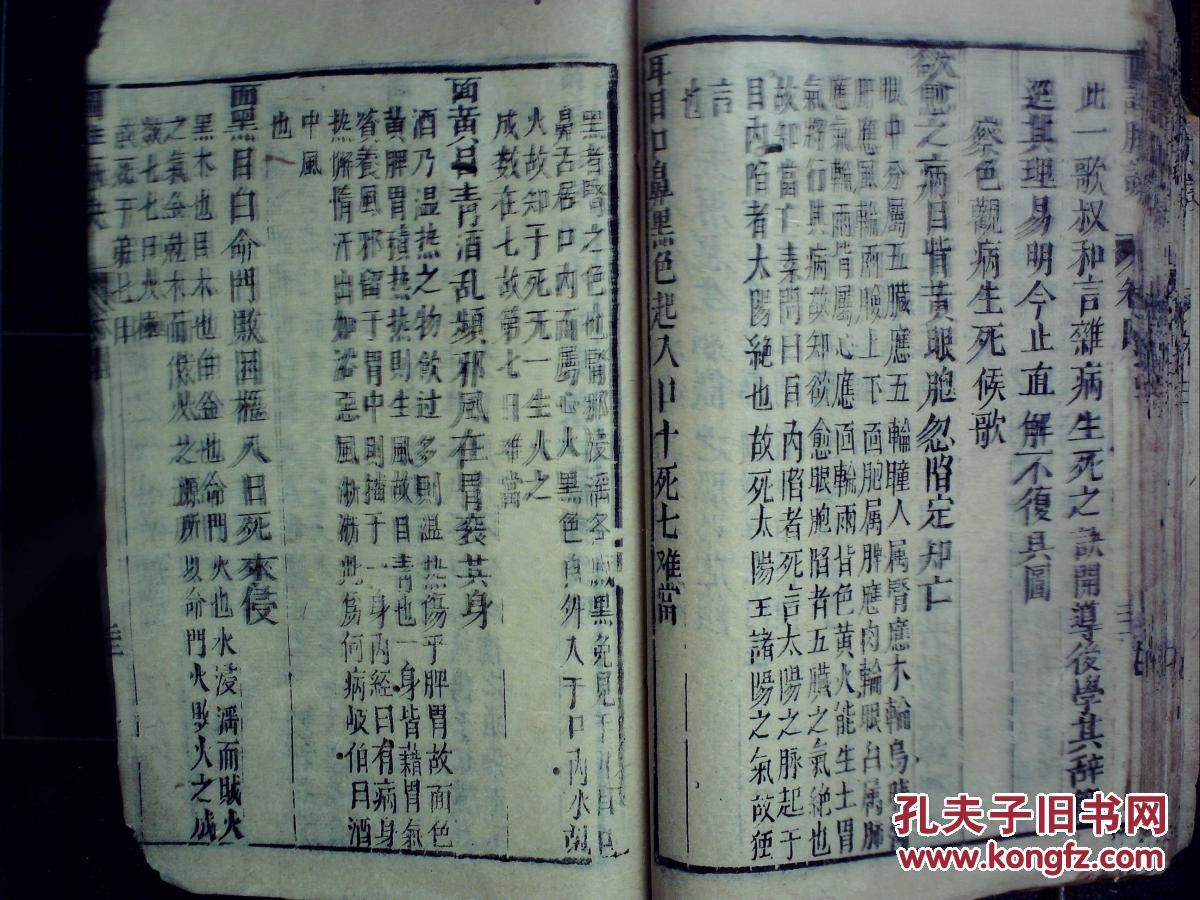 此一歌叔和言雜病生死之訣開導後學其辭
逕其理易明今止直解不復具圖
察色觀病生死候歌
欲愈之病目眥黃眼胞忽陷定知亡
眼中分屬五臟應五輪瞳人属腎應水輪烏睛
肝應風輪兩臉上下面胞属脾應肉輪眼白属肺
應氣輪兩眥属心應血輪兩眥色黃火能生土胃
氣將行其病故知欲愈眼胞陷者五臟之氣絶也
故知當亡素問曰目內陷者死言太陽之脉起于
目內陷者太陽絶也故死太陽王諸陽之氣故獨
言
也
耳目口鼻黑色起入口十死七难當
黑者腎之色也腎邪浸淫
鼻舌居口內而屬心火黑色自外入于口內水剋
火故知于死无一生火之
成数在七故第七日难當
面黃目青酒乱頻邪風在胃袞其身
酒乃温热之物飲过多則温热傷乎脾胃故面色
黃脾胃積热热則生風故目青也一身皆藉胃氣
資養風邪留于胃中則播于一身內経曰有病身
热懈惰汗出如浴惡風此爲何病岐伯曰酒
中風
也
面黑目白命門敗困極八日死來侵
黑木也目木也白金也命門火也水浸淫而賊火
之氣金尅木而保火之源所以命門火敗火之成
数七七日火極
故死于第七日
孔夫子旧书网
www.kongfz.com